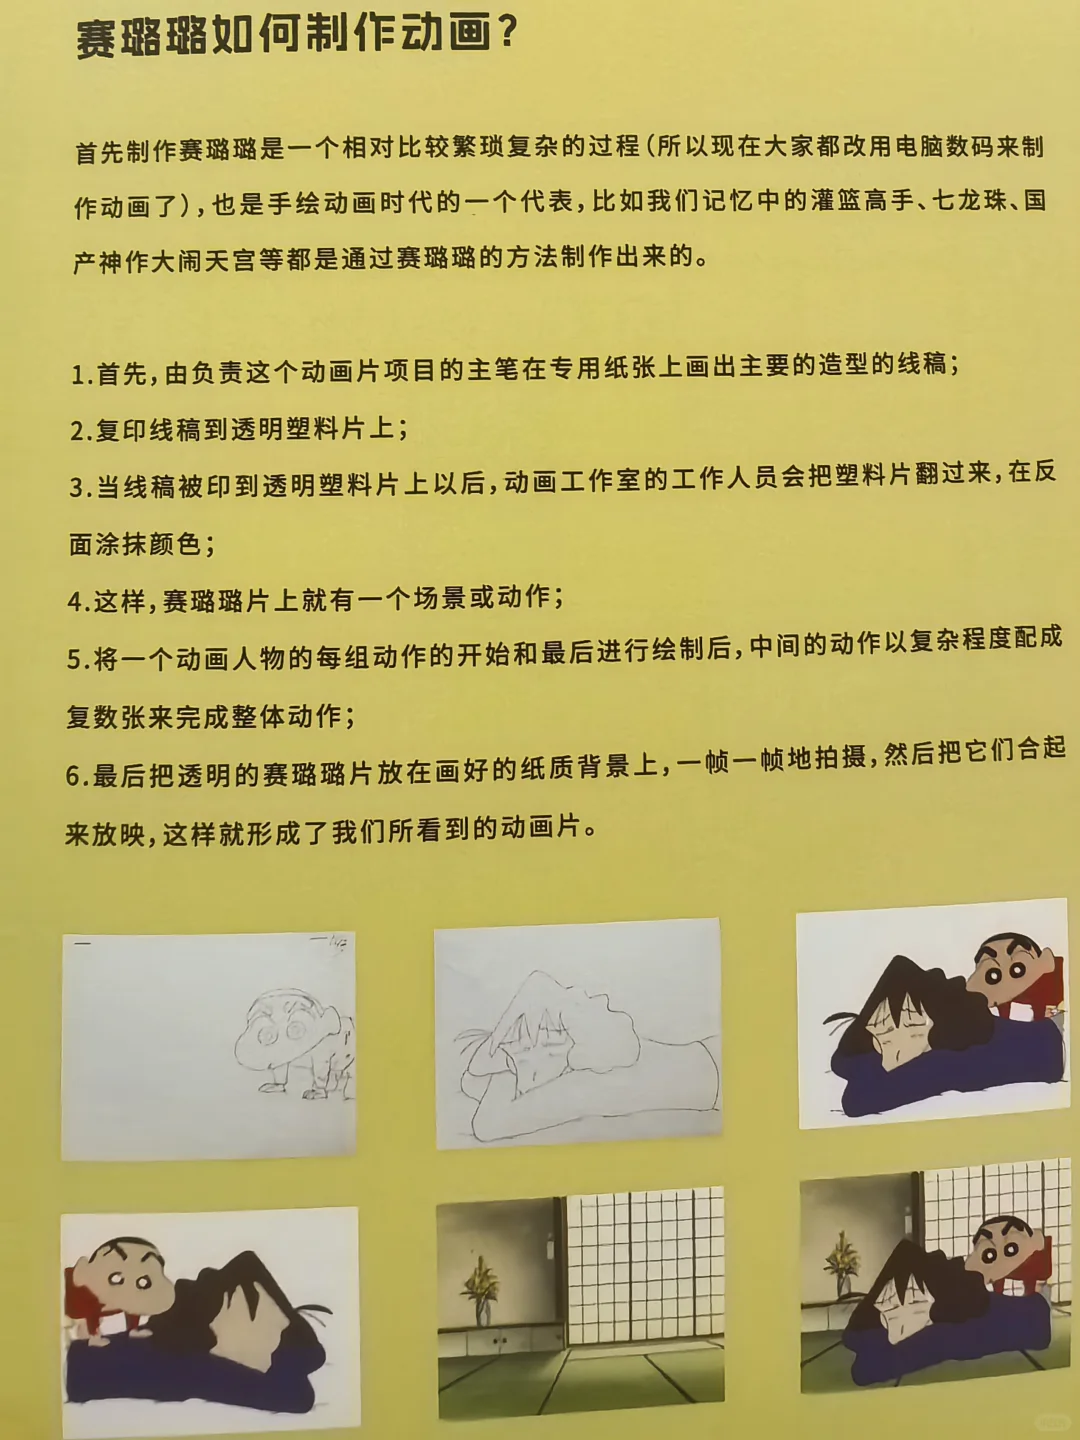 赛璐璐如何制作动画?
首先制作赛璐璐是一个相对比较繁琐复杂的过程(所以现在大家都改用电脑数码来制
作动画了),也是手绘动画时代的一个代表,比如我们记忆中的灌篮高手、七龙珠、国
产神作大闹天宫等都是通过赛璐璐的方法制作出来的。
1.首先,由负责这个动画片项目的主笔在专用纸张上画出主要的造型的线稿;
2.复印线稿到透明塑料片上;
3.当线稿被印到透明塑料片上以后,动画工作室的工作人员会把塑料片翻过来,在反
面涂抹颜色;
4.这样,赛璐璐片上就有一个场景或动作;
5.将一个动画人物的每组动作的开始和最后进行绘制后,中间的动作以复杂程度配成
复数张来完成整体动作;
6.最后把透明的赛璐璐片放在画好的纸质背景上,一帧一帧地拍摄,然后把它们合起
来放映,这样就形成了我们所看到的动画片。